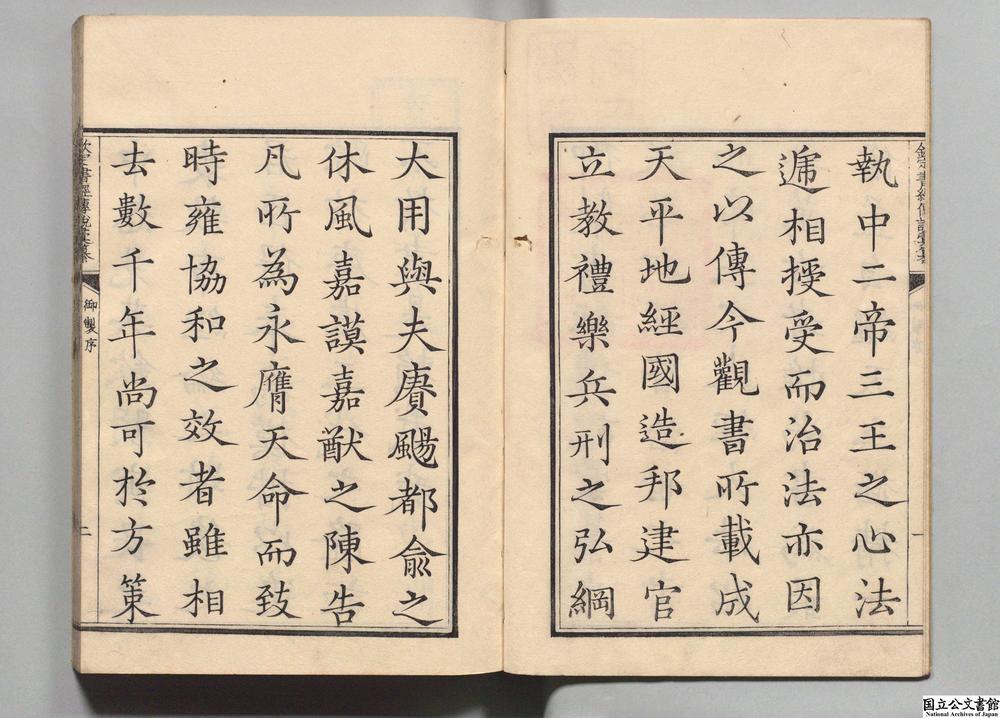 欽定書經傳說彙纂
一
執中二帝三王之心法
遞相授受而治法亦因
之以傳今觀書所載成
天平地經國造邦建官
立教禮樂兵刑之弘綱
大用與夫賡颺都俞之
休風嘉謨嘉猷之陳告
凡所為永膺天命而致
時雍協和之效者雖相
去數千年尚可於方策
欽定書經傳說彙纂
御製序
二
国立公文書館
National Archives of Japan